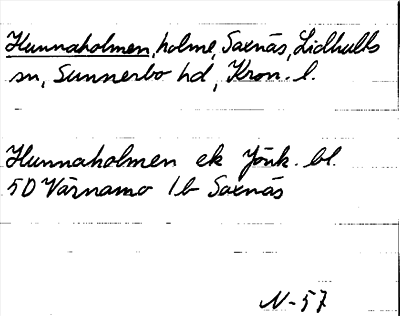 Hunnaholmen, holme, Saxnäs, Lidhults
sn, Sunnerbo hd, Kron. l.
Hunnaholmen ek Jönk. bl.
50 Värnamo 1b Saxnäs
N-57